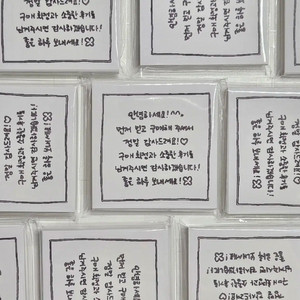 안녕하세요!^^
먼저 믿고 구매해 주셔서
정말 감사드려요!♡
구매 확정과 소중한 후기를
남겨주시면 감사하겠습니다!
좋은 하루 보내세요!